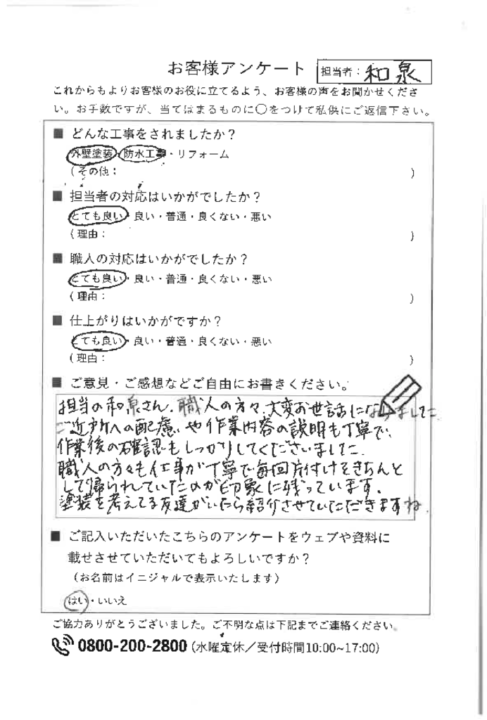 お客様アンケート
担当者：和泉
これからもよりお客様のお役に立てるよう、お客様の声をお聞かせくださ
い。お手数ですが、当てはまるものに○をつけて私供にご返信下さい。
■ どんな工事をされましたか？
外壁塗装・防水工事・リフォーム
（その他：　　　）
■ 担当者の対応はいかがでしたか？
とても良い・良い・普通・良くない・悪い
（理由：　　　）
■ 職人の対応はいかがでしたか？
とても良い・良い・普通・良くない・悪い
（理由：　　　）
■ 仕上がりはいかがですか？
とても良い・良い・普通・良くない・悪い
（理由：　　　）
■ ご意見・ご感想などご自由にお書きください。
担当の和泉さん、職人の方々、大変お世話になりました。
ご近所への配慮や作業内容の説明も丁寧で、
作業後の確認もしっかりしてくださいました。
職人の方々も仕事が丁寧で毎回片付けをきちんと
して帰られていたのが印象に残っています。
塗装を考えてる友達がいたら紹介させていただきますね。
■ ご記入いただいたこちらのアンケートをウェブや資料に
載せさせていただいてもよろしいですか？
（お名前はイニシャルで表示いたします）
はい・いいえ
ご協力ありがとうございました。ご不明な点は下記までご連絡ください。
0800-200-2800（水曜定休／受付時間10:00~17:00）